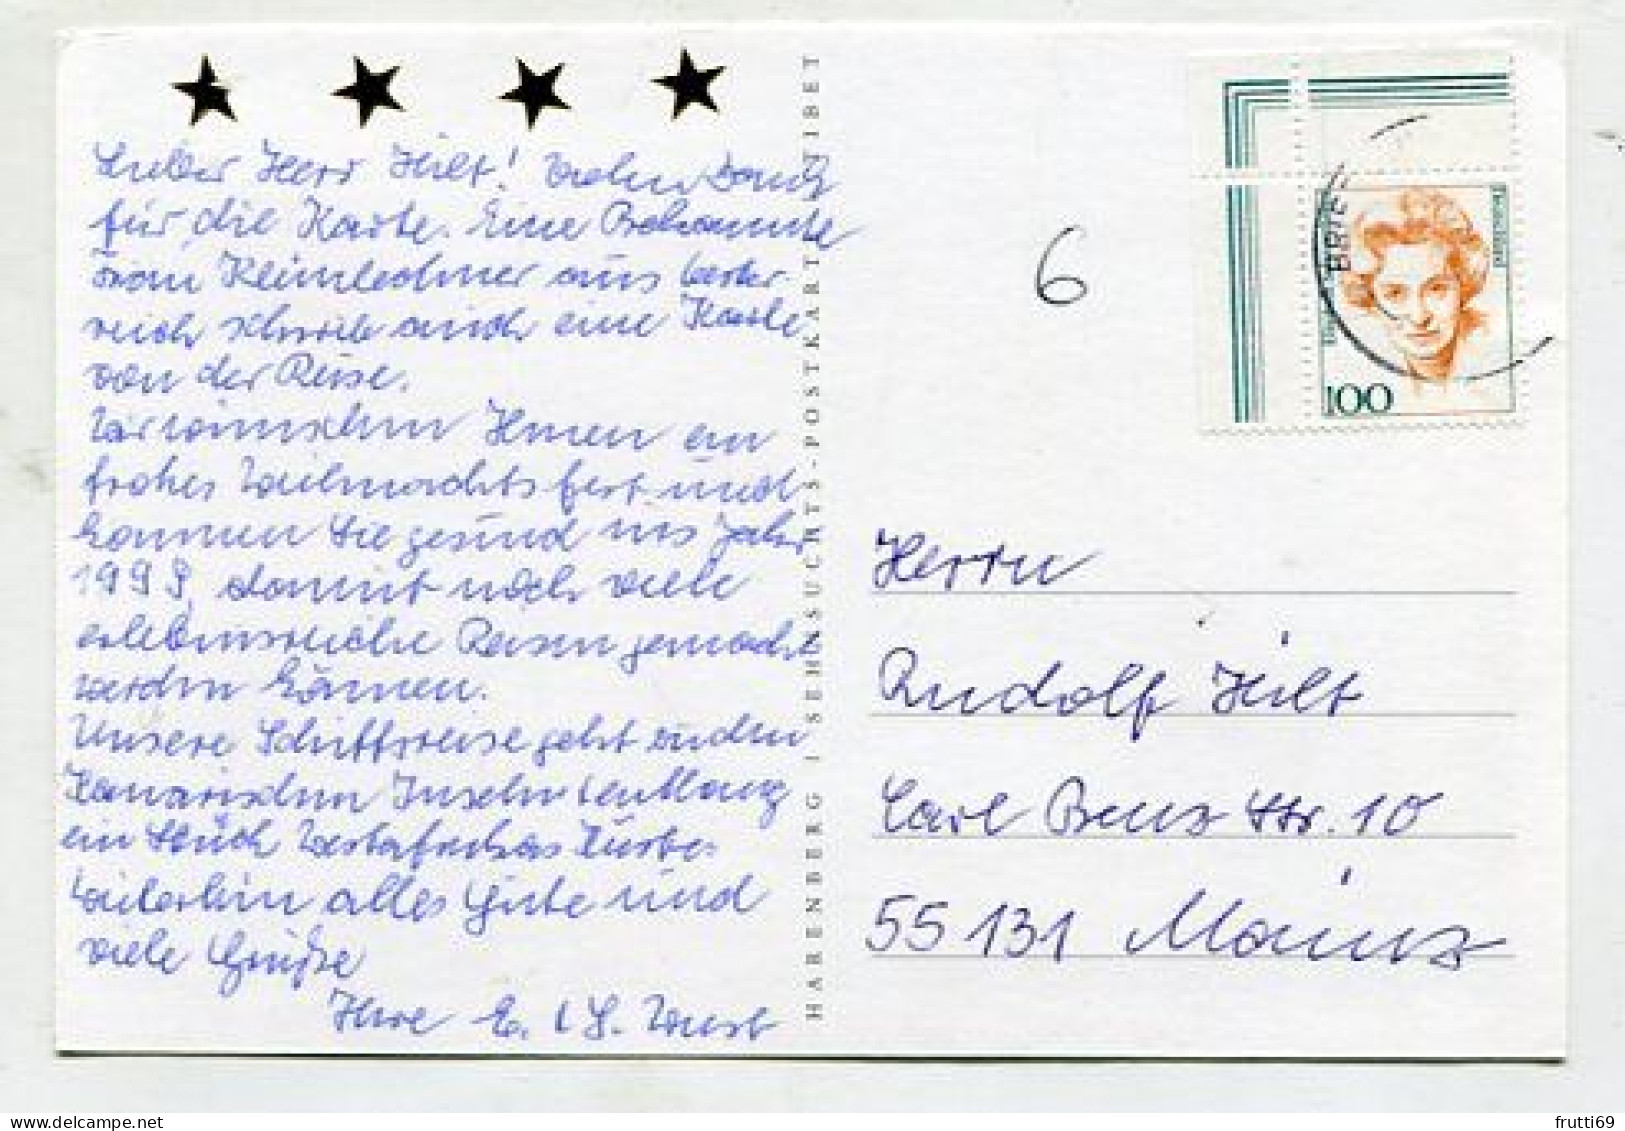 Lieber Herr Hilt! Vielen Dank
für die Karte. Eine Bekannte
Frau Kleinlechner aus Oester-
reich schrieb auch eine Karte
von der Reise.
Wir wünschen Ihnen ein
frohes Weihnachtsfest und
kommen Sie gesund ins Jahr
1999, damit noch viele
erlebnisreiche Reisen gemacht
werden können.
Unsere Schiffsreise geht zu den
Kanarischen Inseln
ein Stück Westafrikas Küste.
Weiterhin alles Gute und
viele Grüße
Ihre E. + S. Wust
HARENBERG SEHNSUCHTS-POSTKARTE TIBET
6
BRIE
100
Herrn
Rudolf Hilt
Carl Benz Str. 10
55131 Mainz
frutti69